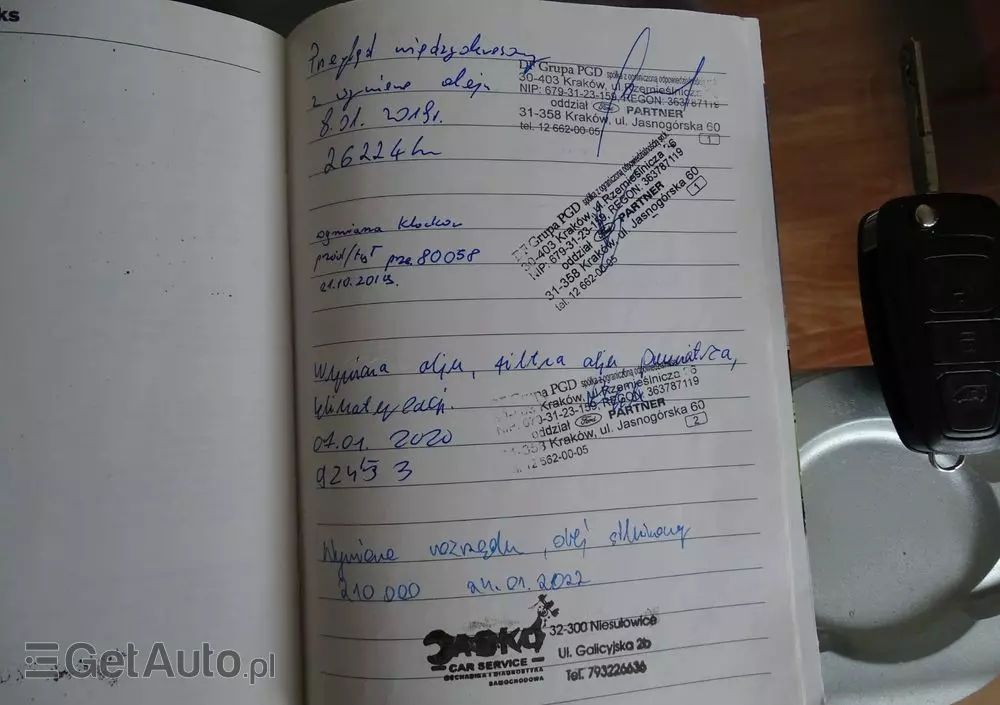 ks
Przegląd międzyokresowy
z wymianą oleju
8.01.2019r.
26224km
DF Grupa PGD spółka z ograniczoną odpowiedzialnością
30-403 Kraków, ul. Rzemieślnicza 26
NIP: 679-31-23-159, REGON: 363787119
oddział Ford PARTNER
31-358 Kraków, ul. Jasnogórska 60
tel. 12 662-00-05
1
wymiana klocków
przód/tył prze 80058
21.10.2019.
Grupa PGD spółka z ograniczoną odpowiedzialnością
30-403 Kraków, ul. Rzemieślnicza 26
NIP: 679-31-23-159, REGON: 363787119
oddział Ford PARTNER
31-358 Kraków, ul. Jasnogórska 60
tel. 12 662-00-05
1
Wymiana oleju, filtra oleju, powietrza,
klimatyzacji.
07.01.2020
upa PGD spółka z ograniczoną odpowiedzialnością
Kraków, ul. Rzemieślnicza 26
NIP: 679-31-23-159, REGON: 363787119
oddział Ford PARTNER
31-358 Kraków, ul. Jasnogórska 60
12 662-00-05
2
Wymiana rozrządu, olej silnikowy
210 000 24.01.2022
JAŚKO
CAR SERVICE
MECHANIKA I DIAGNOSTYKA
SAMOCHODOWA
32-300 Niesułowice
Ul. Galicyjska 2b
Tel. 793226636
GetAuto.pl